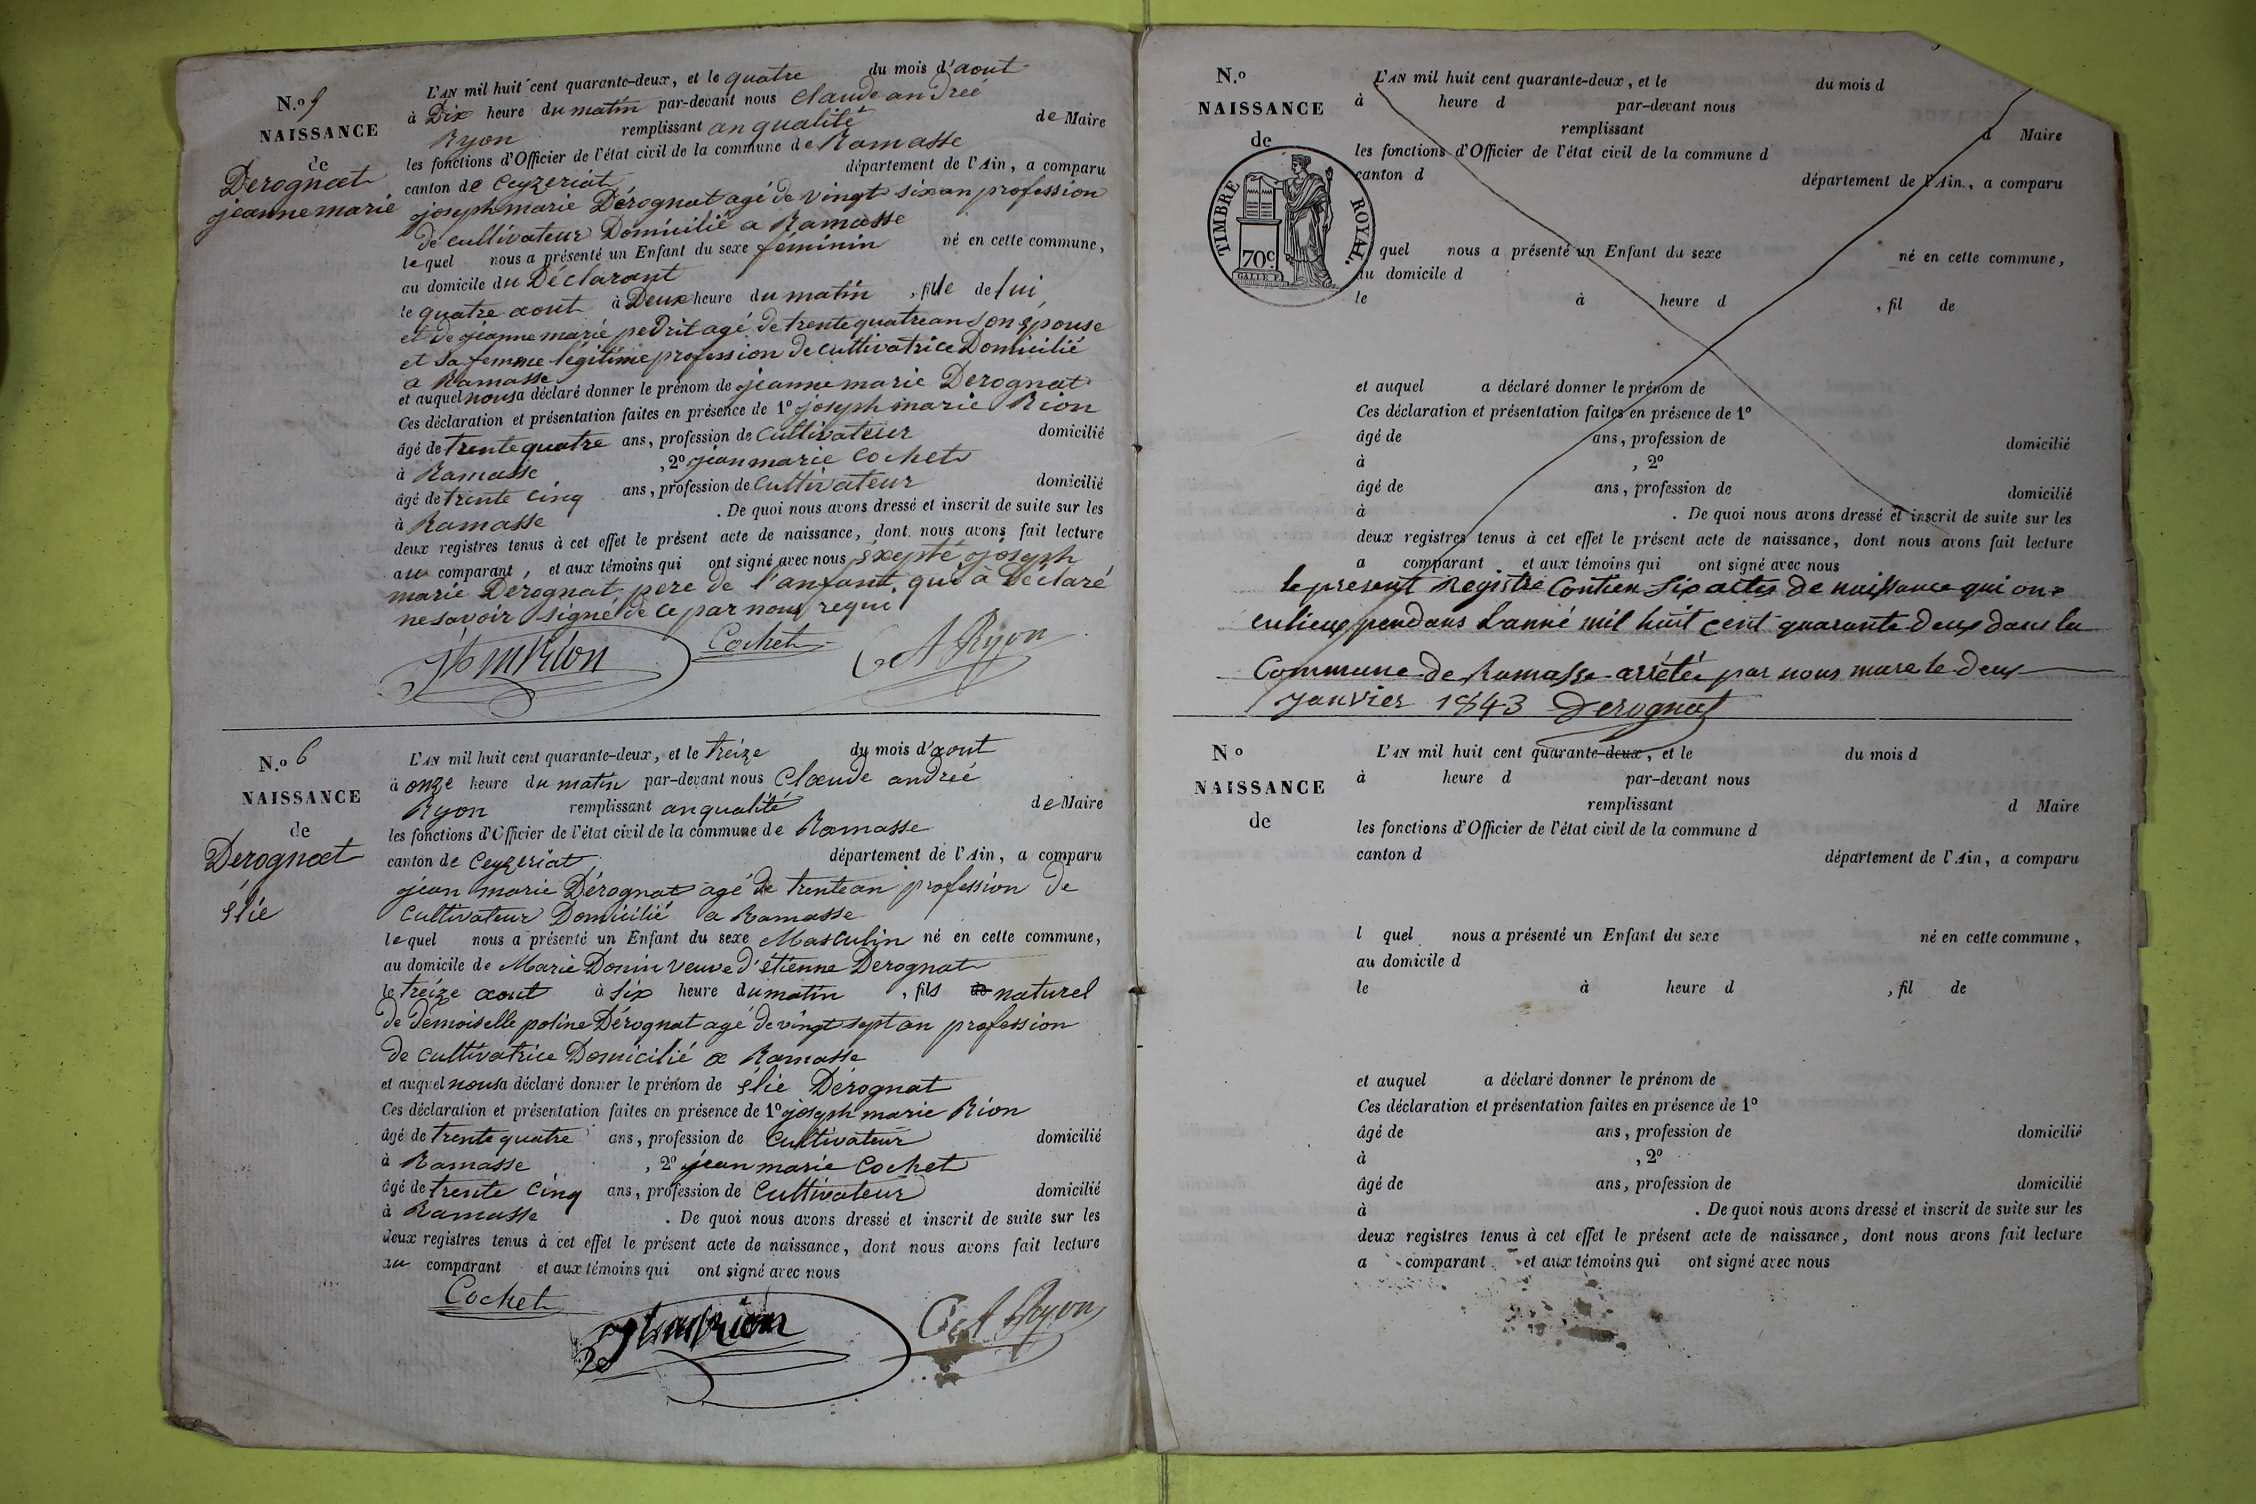 N.o 5
NAISSANCE
de
Derognat
jeanne marie
L'AN mil huit cent quarante-deux, et le quatre du mois d'aout
à Dix heure du matin par-devant nous claude andréé
Ryon remplissant an qualité de Maire
les fonctions d'Officier de l'état civil de la commune de Ramasse
canton de Ceyzeriat département de l'Ain, a comparu
joseph marie Dérognat agé de vingt six an profession
de cultivateur Domicilié a Ramasse
lequel nous a présenté un Enfant du sexe féminin né en cette commune,
au domicile du Déclarant
le quatre aout à Deux heure du matin, fille de lui
et de jeanne marie pedrit agé de trente quatre an son épouse
et sa femme légitime profession de cultivatrice Domicilié
a Ramasse
et auquel nous a déclaré donner le prénom de jeanne marie Derognat
Ces déclaration et présentation faites en présence de 1º joseph marie Rion
âgé de trente quatre ans, profession de Cultivateur domicilié
à Ramasse, 2º jean marie Cochet
âgé de trente cinq ans, profession de Cultivateur domicilié
à Ramasse. De quoi nous avons dressé et inscrit de suite sur les
deux registres tenus à cet effet le présent acte de naissance, dont nous avons fait lecture
au comparant, et aux témoins qui ont signé avec nous éxepté joseph
marie Dérognat pere de l'anfant qui à déclaré
ne savoir signé de ce par nous requi.
Cochet C A Ryon
N.o 6
NAISSANCE
de
Derognat
élie
L'AN mil huit cent quarante-deux, et le treize du mois d'aout
à onze heure du matin par-devant nous Claude andréé
Ryon remplissant an qualité de Maire
les fonctions d'Officier de l'état civil de la commune de Ramasse
canton de Ceyzeriat département de l'Ain, a comparu
jean marie Dérognat agé de trente an profession de
Cultivateur Domicilié a Ramasse
lequel nous a présenté un Enfant du sexe Masculin né en cette commune,
au domicile de Marie Donin veuve d'étienne Derognat
le treize aout à six heure du matin, fils de naturel
de demoiselle poline Dérognat agé de vingt sept an profession
de cultivatrice Domicilié a Ramasse
et auquel nous a déclaré donner le prénom de élie Dérognat
Ces déclaration et présentation faites en présence de 1º joseph marie Rion
âgé de trente quatre ans, profession de Cultivateur domicilié
à Ramasse, 2º jean marie Cochet
âgé de trente cinq ans, profession de Cultivateur domicilié
à Ramasse. De quoi nous avons dressé et inscrit de suite sur les
deux registres tenus à cet effet le présent acte de naissance, dont nous avons fait lecture
au comparant et aux témoins qui ont signé avec nous
Cochet C A Ryon
N.o
NAISSANCE
de
TIMBRE ROYAL.
70c
L'AN mil huit cent quarante-deux, et le du mois d
à heure d par-devant nous
remplissant d Maire
les fonctions d'Officier de l'état civil de la commune d
canton d département de l'Ain, a comparu
quel nous a présenté un Enfant du sexe né en cette commune,
au domicile d
le à heure d, fil de
et auquel a déclaré donner le prénom de
Ces déclaration et présentation faites en présence de 1º
âgé de ans, profession de domicilié
à, 2º
âgé de ans, profession de domicilié
à. De quoi nous avons dressé et inscrit de suite sur les
deux registres tenus à cet effet le présent acte de naissance, dont nous avons fait lecture
a comparant et aux témoins qui ont signé avec nous
le present Registre Contien Six actes de naissance qui on
eu lieux pendans L'anné mil huit cent quarante deux dans la
Commune de Ramasse arrétée par nous mare le deux
Janvier 1843 Derognat
N o
NAISSANCE
de
L'AN mil huit cent quarante-deux, et le du mois d
à heure d par-devant nous
remplissant d Maire
les fonctions d'Officier de l'état civil de la commune d
canton d département de l'Ain, a comparu
l quel nous a présenté un Enfant du sexe né en cette commune,
au domicile d
le à heure d, fil de
et auquel a déclaré donner le prénom de
Ces déclaration et présentation faites en présence de 1º
âgé de ans, profession de domicilié
à, 2º
âgé de ans, profession de domicilié
à. De quoi nous avons dressé et inscrit de suite sur les
deux registres tenus à cet effet le présent acte de naissance, dont nous avons fait lecture
a comparant et aux témoins qui ont signé avec nous